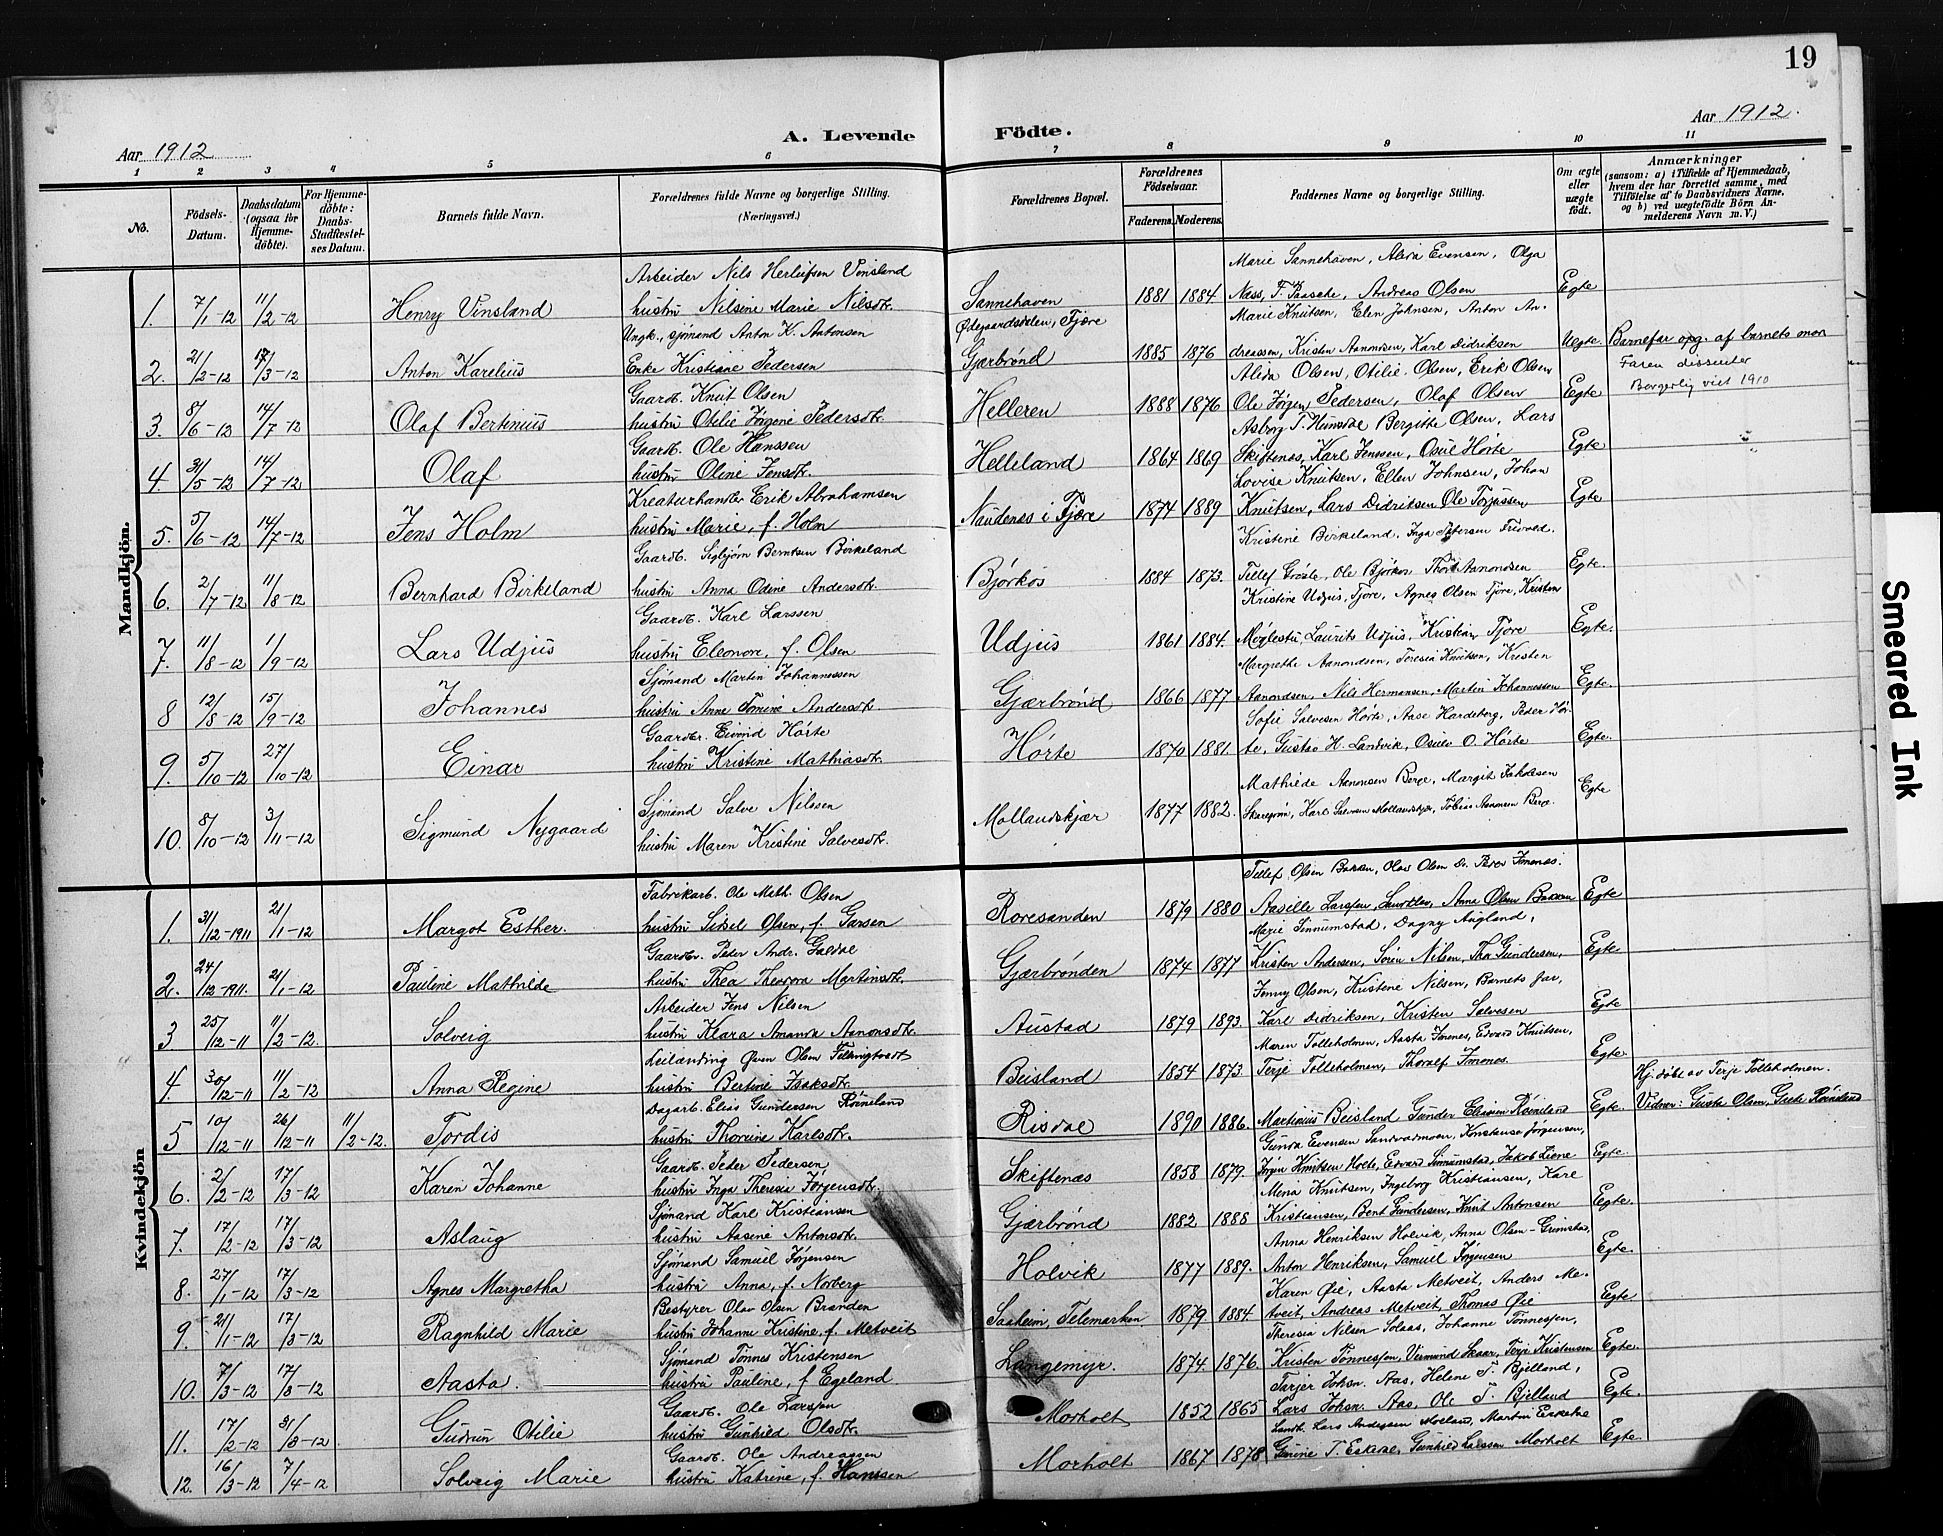 19
Aar 1912
A. Levende Födte.
Aar 1912.
1 2 3 4 5 6 7 8 9 10 11
No.
Födsels-Datum.
Daabsdatum (ogsaa för Hjemme-döbte).
For Hjemme-döbte: Daabs-Stadfæstel-ses Datum.
Barnets fulde Navn.
Forældrenes fulde Navne og borgerlige Stilling. (Næringsvei.)
Forældrenes Bopæl.
Forældrenes Födselsaar.
Faderens. Moderens.
Faddernes Navne og borgerlige Stilling.
Om ægte eller uægte födt.
Anmærkninger (saasom: a) i Tilfælde af Hjemmedaab, hvem der har forrettet samme, med Tilföielse af to Daabsvidners Navne, og b) ved uægtefödte Börn Anmelderens Navn m. V.)
Mandkjön.
Arbeider Nils Herleifsen Vinsland Marie Sannehaven, Alida Evensen, Olga
1. 7/1-12 11/2-12 Henry Vinsland hustru Nilsine Marie Nilsdtr. Sannehaven 1881 1884 Næss, T. Paasche, Andreas Olsen Egte
Ungk., sjømand Anton K. Antonsen Ødegaardsdalen, Fjære Marie Knutsen, Elen Johnsen, Anton An-
2. 21/2-12 17/3-12 Anton Karelius Enke Kristiane Pedersen Gjærbrønd 1885 1876 dreassen, Kristen Aanondsen, Karl Didriksen Uegte Barnefar opg. af barnets mor
Gaardb. Knut Olsen Alida Olsen, Otilie Olsen, Erik Olsen Faren dissenter
3. 8/6-12 14/7-12 Olaf Bertinius hustru Otilie Jørgine Pedersdtr. Helleren 1888 1876 Ole Jørgen Pedersen, Olaf Olsen Egte Borgerlig viet 1910
Gaardb. Ole Hanssen Asborg T. Humsdal Bergitte Olsen, Lars
4. 31/5-12 14/7-12 Olaf hustru Oline Jensdtr. Helleland 1864 1869 Skiftenæs, Karl Jenssen, Osul Hørte Egte
Kreaturhandler Erik Abrahamsen Lovise Knutsen, Ellen Johnsen, Johan
5. 5/6-12 14/7-12 Jens Holm hustru Marie, f. Holm Naudenæs i Fjære 1874 1889 Knutsen, Lars Didriksen Ole Torjussen, Egte
Gaardb. Sigbjørn Berntsen Birkeland Kristine Birkeland, Inga Petersen Frivold.
6. 2/7-12 11/8-12 Bernhard Birkeland hustru Anna Odine Andersdtr. Bjørkos 1884 1873. Tellef Grøsle, Ole Bjørkos Thor Aanondsen Egte.
Gaardb. Karl Larssen Kristine Udjus, Tjore, Agnes Olsen Tjore, Kristen
7. 11/8-12 1/9-12 Lars Udjus hustru Eleonore, f. Olsen Udjus 1861 1884. Møglestu, Laurits Udjus, Kristian Tjore Egte.
Sjømand Martin Johannessen Margrethe Aanondsen, Teresia Knutsen, Kristen
8 12/8-12 15/9-12 Johannes hustru Anne Tomine Andersdtr Gjærbrønd 1866 1877 Aanondsen, Nils Hermansen, Martin Johannessen Egte.
Gaardbr. Eivind Hørte Sofie Salvesen Hørte, Aase Hardeberg, Peder Hør-
9. 5/10-12 27/10-12 Einar hustru Kristine Mathiasdtr. Hørte 1870 1881. te, Gustav H. Landvik, Osulv O. Hørte Egte.
Sjømand Salve Nilsen Mathilde Aanonsen Berge, Margit Jakobsen
10. 8/10-12 3/11-12 Sigmund Nygaard hustru Maren Kristine Salvesdtr. Mollandskjær 1877 1882. Karl Salvesen Mollandskjær, Tobias Aanonsen Berge Egte
Kvindekjön
Fabrikarb. Ole Math. Olsen Tellef Olsen Bakken, Olav Olsen
1. 31/12-1911 21/1-12 Margot Esther. hustru Sissel Olsen, f. Garsen Roresanden 1879 1880 Anna Olsen Bakken Egte
Gaardbr. Peder Andr. Galdal Marie Sinnumstad, Dagny Augland,
2. 24/12-1911. 21/1-12 Pauline Mathilde hustru Thea Theodora Martinsdtr. Gjærbrønden 1874 1877 Kristen Andersen, Søren Nilsen, Tho Gundersen, Egte
Arbeider Jens Nilsen Jenny Olsen, Kristene Nilsen, Barnets far,
3 25/12-11 11/2-12 Solveig hustru Klara Amanda Aanonsdtr. Austad 1879 1893. Karl Didriksen, Kristen Salvesen Egte
Leilænding Øven Olsen Maren Tolleholmen, Aasta Imenes, Edvard Knutsen,
4. 30/12-11 11/2-12 Anna Regine hustru Bertine Isaksdtr. Beisland 1854 1873 Terje Tolleholmen, Thoralf Imenes. Egte Hj. døbt av Terje Tolleholmen.
Dagarb. Elias Gundersen Røineland
5 10/12-11 26/12-11 11/2-12. Tordis hustru Thorine Karlsdtr. Risdal 1890 1886. Martinius Beisland Gunder Eliassen Røineland Egte. Vidner: Gusta Olsen, Guste Røineland
Gaardb. Peder Pedersen Gunda Evensen Sandvadmoen, Konstanse Jørgensen,
6. 2/2-12 17/3-12 Karen Johanne hustru Inga Theresia Jørgensdtr. Skiftenæs 1858 1879. Jørgen Knutsen Holte, Edvard Sinnumstad, Jakob Liene Egte.
Sjømand Karl Kristiansen Mina Knutsen, Ingeborg Kristiansen, Karl
7. 17/2-12 17/3-12 Aslaug hustru Aasine Antonsdtr. Gjærbrønd 1882 1888 Kristiansen, Bent Gundersen, Knut Antonsen Egte.
Sjømand Samuel Jørgensen Anna Henriksen Holvik, Anna Olsen-Grimstad,
8. 27/1-12 17/3-12 Agnes Margretha hustru Anna, f. Norberg Holvik 1877 1889. Anton Henriksen, Samuel Jørgensen Egte.
Bestyrer Olav Olsen Branden Karen Øie, Aasta Metveit, Anders Me-
9 21/1-12 17/3-12 Ragnhild Marie hustru Johanne Kristine, f. Metveit Saaheim, Telemarken 1879 1884. tveit, Andreas Metveit, Thomas Øie Egte
Sjømand Tønnes Kristensen Theresia Nilsen Solaas, Johanne Tønnessen,
10. 7/3-12 17/3-12 Aasta. hustru Pauline, f. Egeland Langemyr. 1874 1876. Kristen Tønnessen, Vermund Skaar, Terje Kristensen Egte.
Gaardb. Ole Larssen Tarjer Johsn. Aas, Helene T. Bjelland,
11. 17/2-12 31/3-12 Gudrun Otilie hustru Gunhild Olsdtr. Morholt 1852 1865 Lars Johsn. Aas, Ole T. Bjelland Egte.
Gaardb. Ole Andreassen Landb. Lars Andersen Molland, Martin Eskedal
12. 16/3-12 7/4-12 Solveig Marie hustru Katrine, f. Hanssen Morholt 1867 1878 Gurine T. Eskedal, Gunhild Larssen Morholt Egte.
Smeared Ink